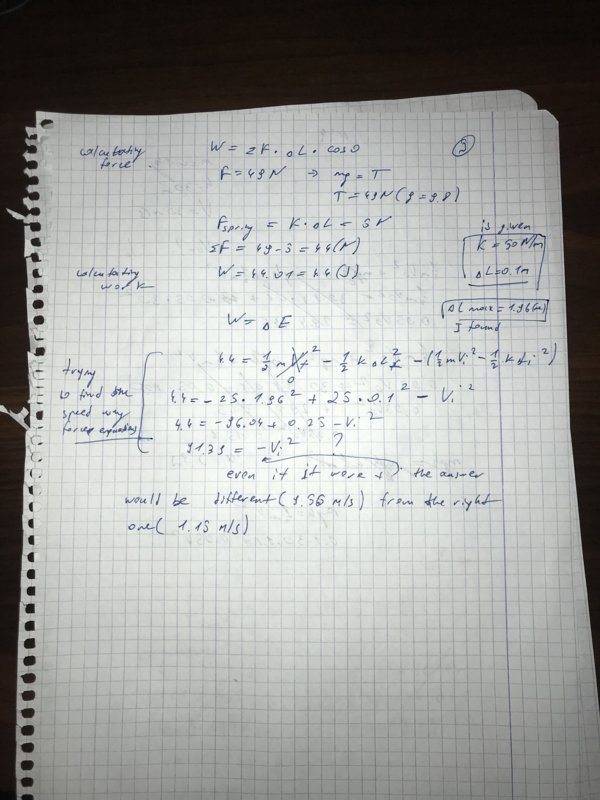 ③
calculating
force.
W = ΣF · ΔL · cosθ
F = 49N ⇒ mg = T
T = 49N (g = 9.8)
Fspring = K · ΔL = 5N
ΣF = 49 - 5 = 44 (N)
is given
K = 50 N/m
ΔL = 0.1m
calculating
work
W = 44 · 0.1 = 4.4 (J)
ΔL max = 1.96 (m)
I found
W = ΔE
trying
to find the
speed using
forces equations
4.4 = 1/2 m Vf² - 1/2 K ΔLf² - (1/2 m Vi² - 1/2 K Li²)
0
4.4 = -25 · 1.96² + 25 · 0.1² - Vi²
4.4 = -96.04 + 0.25 - Vi²
91.39 = -Vi² ?
even if it were + the answer
would be different (9.56 m/s) from the right
one (1.15 m/s)